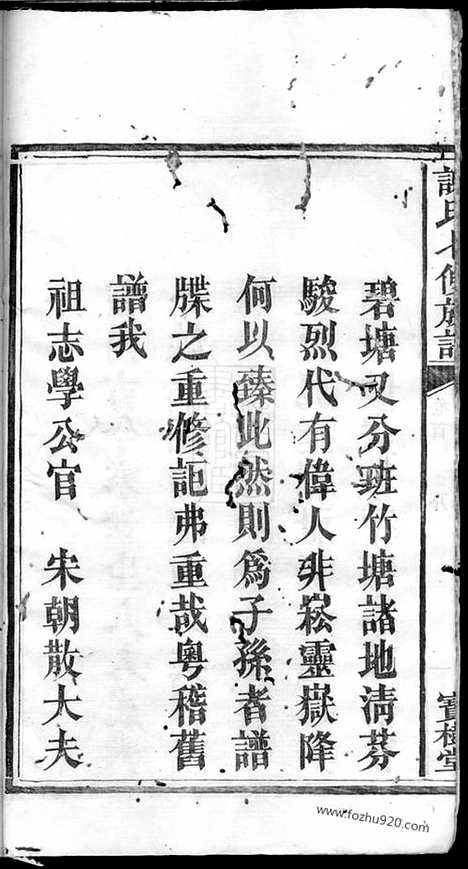 謝氏七修族譜
寶樹堂
碧塘又分班竹塘諸地清芬
駿烈代有偉人非崧靈嶽降
何以臻此然則為子孫者譜
牒之重修詎弗重哉粵稽舊
譜我
祖志學公官 宋朝散大夫
www.fozhu920.com